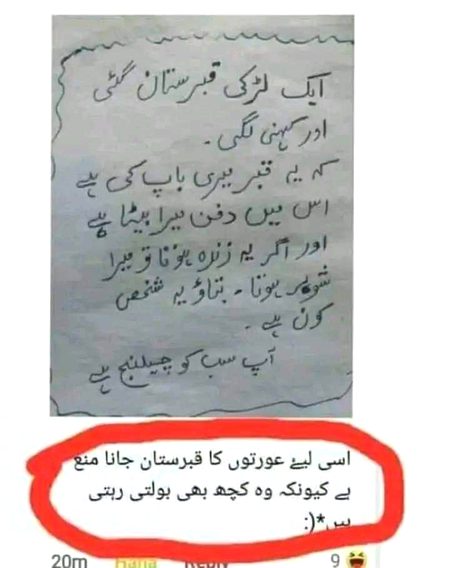 ایک لڑکی قبرستان گئی
اور کہنی لگی۔
کہ یہ قبر میری باپ کی ہے
اس میں دفن میرا بیٹا ہے
اور اگر یہ زندہ ہوتا تو میرا
شوہر ہوتا۔ بتاؤ یہ شخص
کون ہے۔
آپ سب کو چیلنج ہے
اسی لیۓ عورتوں کا قبرستان جانا منع
ہے کیونکہ وہ کچھ بھی بولتی رہتی
ہیں*(:
20m Haha Reply 9